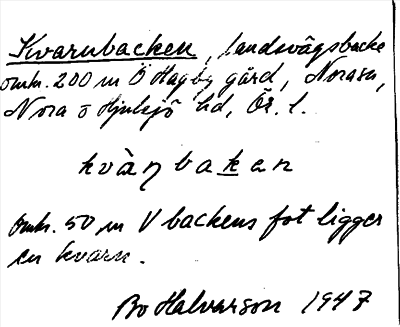 Kvarnbacken, landsvägsbacke
omkr. 200 m Ö Hagby gård, Nora sn,
Nora o Hjulsjö hd, Ör. l.
kvàɳbakan
Omkr. 50 m V backens fot ligger
en kvarn.
Bo Halvarson 1947